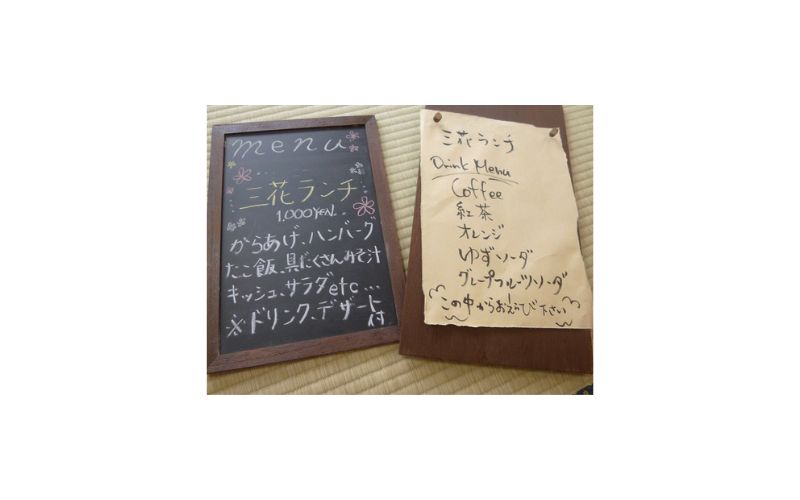 menu
三花ランチ
1,000YEN.
からあげ、ハンバーグ
たこ飯、具だくさんみそ汁
キッシュ、サラダetc...
※ドリンク、デザート付
三花ランチ
Drink Menu
Coffee
紅茶
オレンジ
ゆずソーダ
グレープフルーツソーダ
この中からお選び下さい